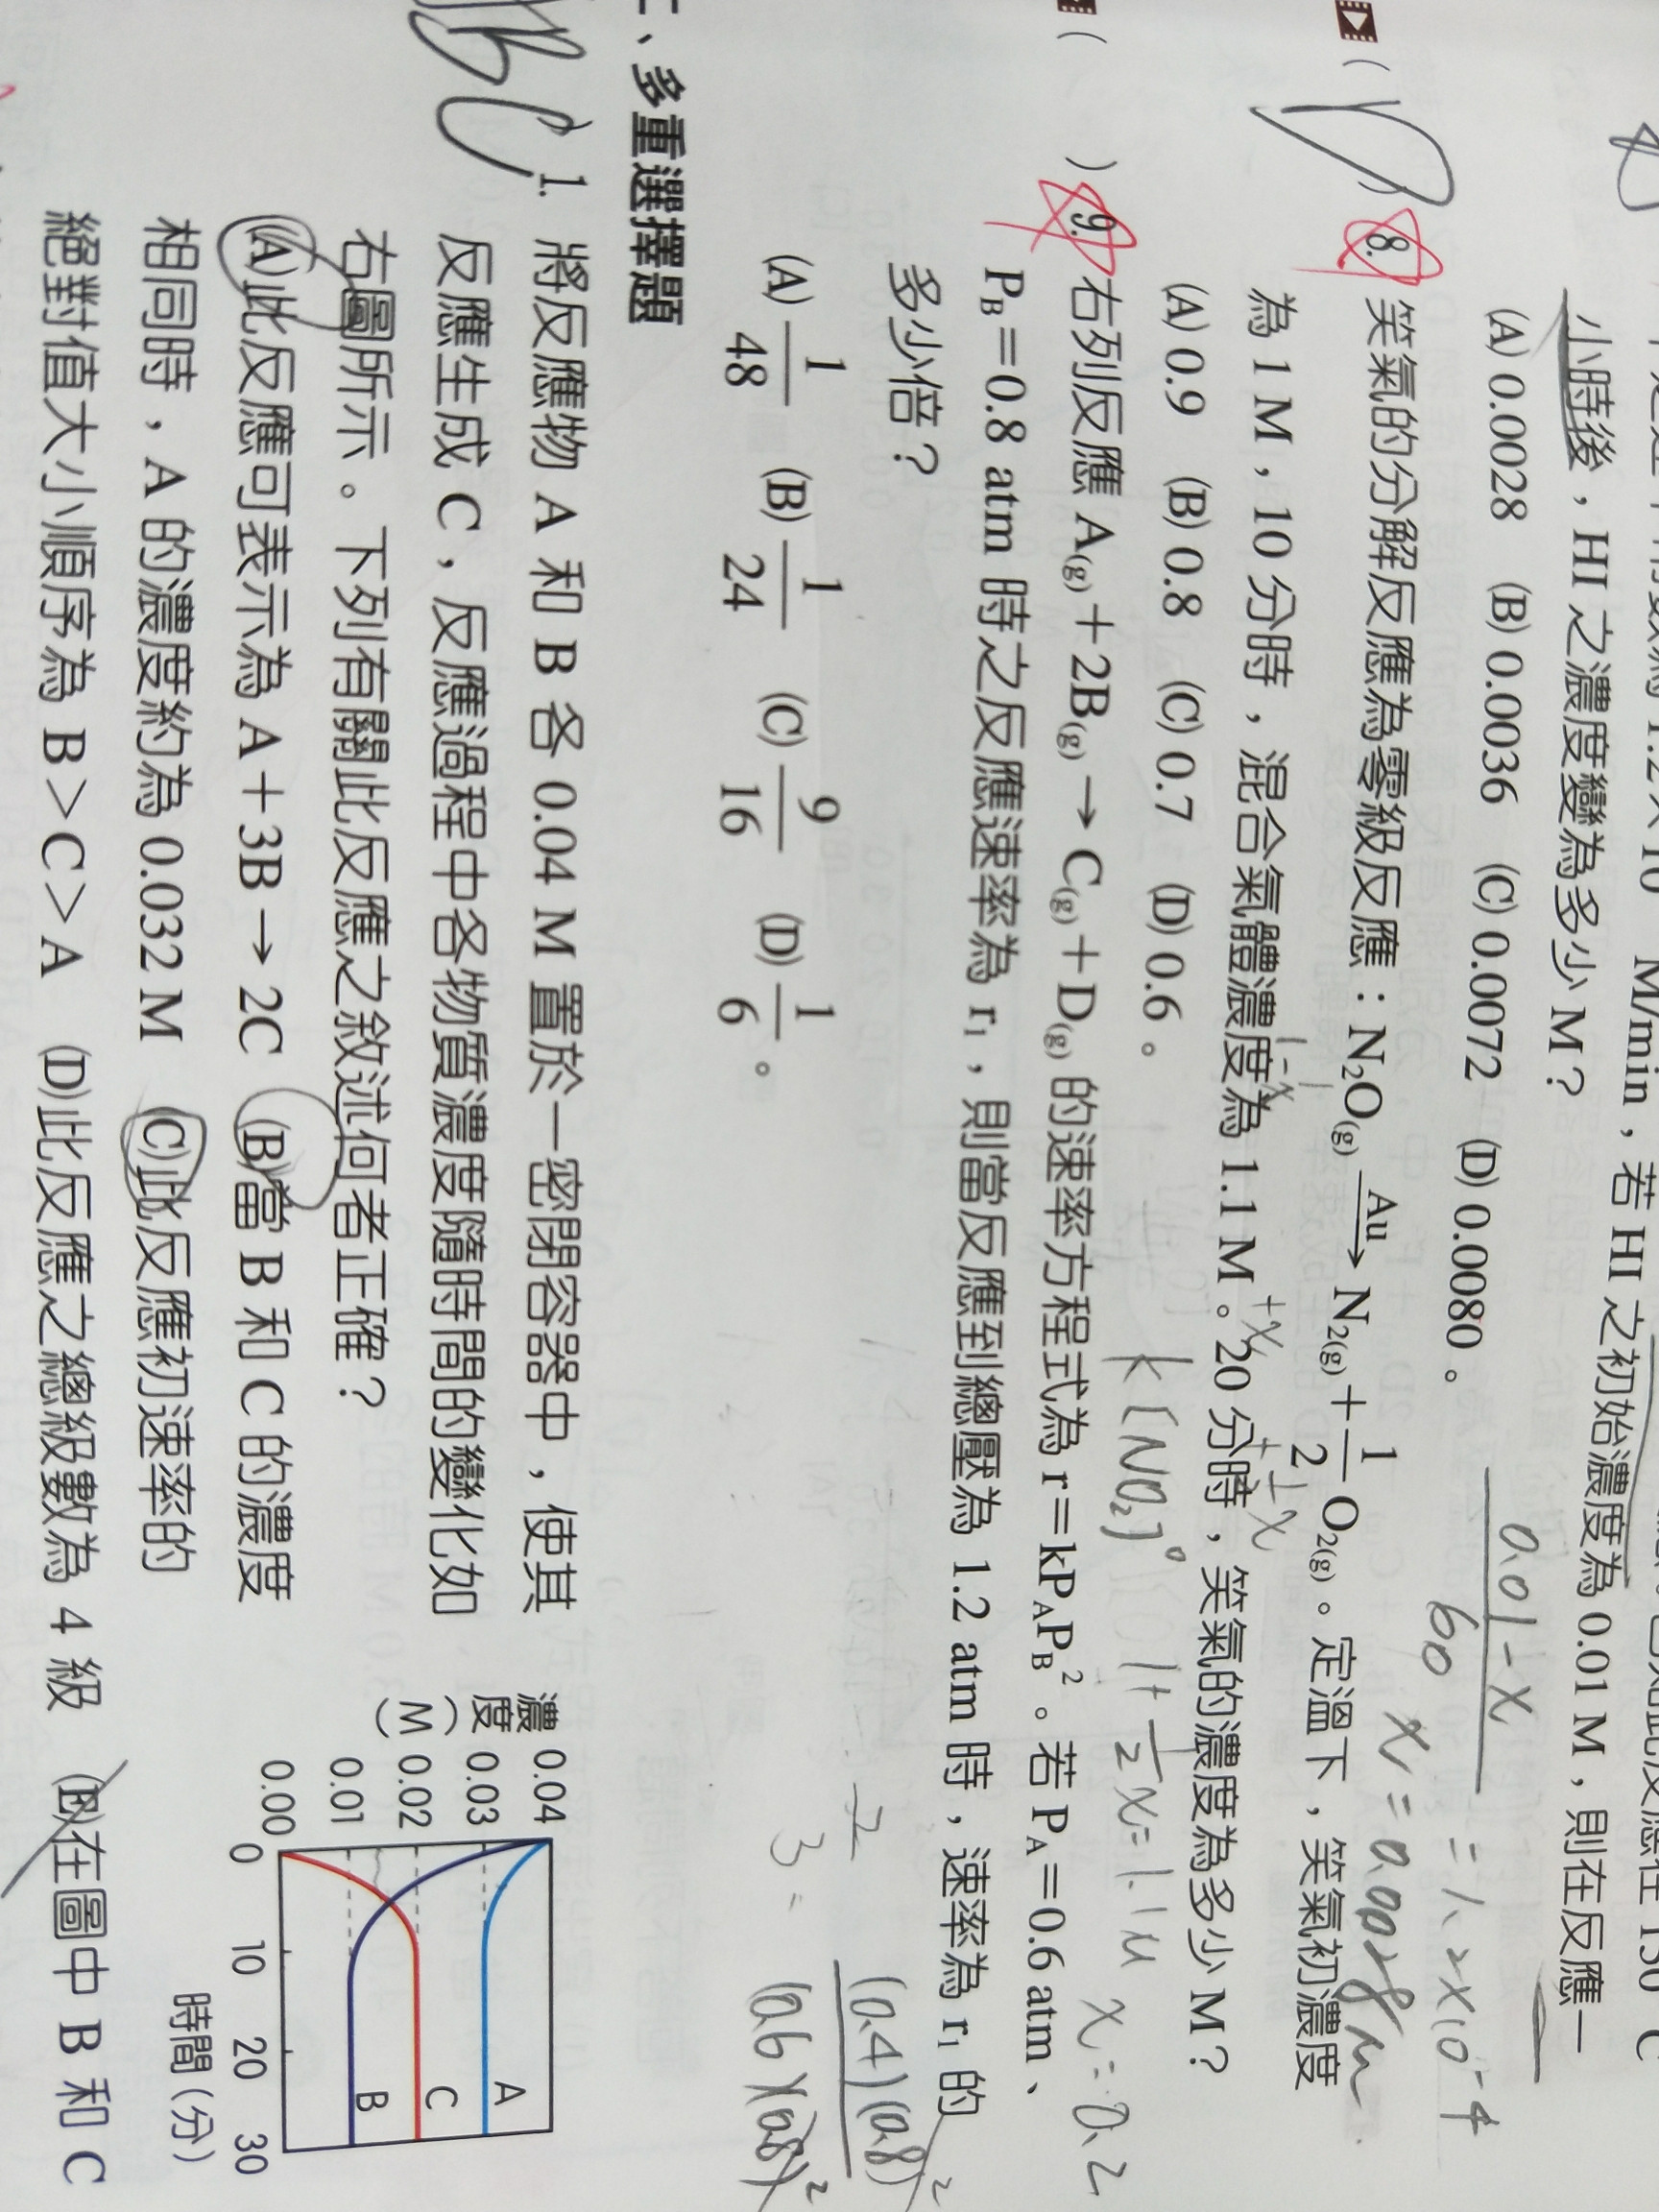 M/min，若 HI 之初始濃度為 0.01 M，則在反應一
小時後，HI 之濃度變為多少 M？
(A) 0.0028 (B) 0.0036 (C) 0.0072 (D) 0.0080。
0.01-x
60
= 1.2×10⁻⁴
x = 0.0028 M
( ) 8. 笑氣的分解反應為零級反應：N₂O(g) —Au→ N₂(g) + 1/2 O₂(g)。定溫下，笑氣初濃度
1-x +x +½x
為 1 M，10 分時，混合氣體濃度為 1.1 M。20 分時，笑氣的濃度為多少 M？
(A) 0.9 (B) 0.8 (C) 0.7 (D) 0.6。
k[NO₂]⁰
1+½x=1.1M x=0.2
( ) 9. 右列反應 A(g)＋2B(g)→C(g)＋D(g) 的速率方程式為 r＝kPAPB²。若 PA＝0.6 atm、
PB＝0.8 atm 時之反應速率為 r₁，則當反應到總壓為 1.2 atm 時，速率為 r₁ 的
多少倍？
(0.4)(0.8)²
(0.6)(0.8)²
(A) 1/48 (B) 1/24 (C) 9/16 (D) 1/6。
二、多重選擇題
BC
1. 將反應物 A 和 B 各 0.04 M 置於一密閉容器中，使其
反應生成 C，反應過程中各物質濃度隨時間的變化如
右圖所示。下列有關此反應之敘述何者正確？
(A)此反應可表示為 A＋3B→2C (B)當 B 和 C 的濃度
相同時，A 的濃度約為 0.032 M (C)此反應初速率的
絕對值大小順序為 B＞C＞A (D)此反應之總級數為 4 級 (E)在圖中 B 和 C
濃度（M）
0.04
0.03
0.02
0.01
0.00
A
C
B
0 10 20 30
時間（分）